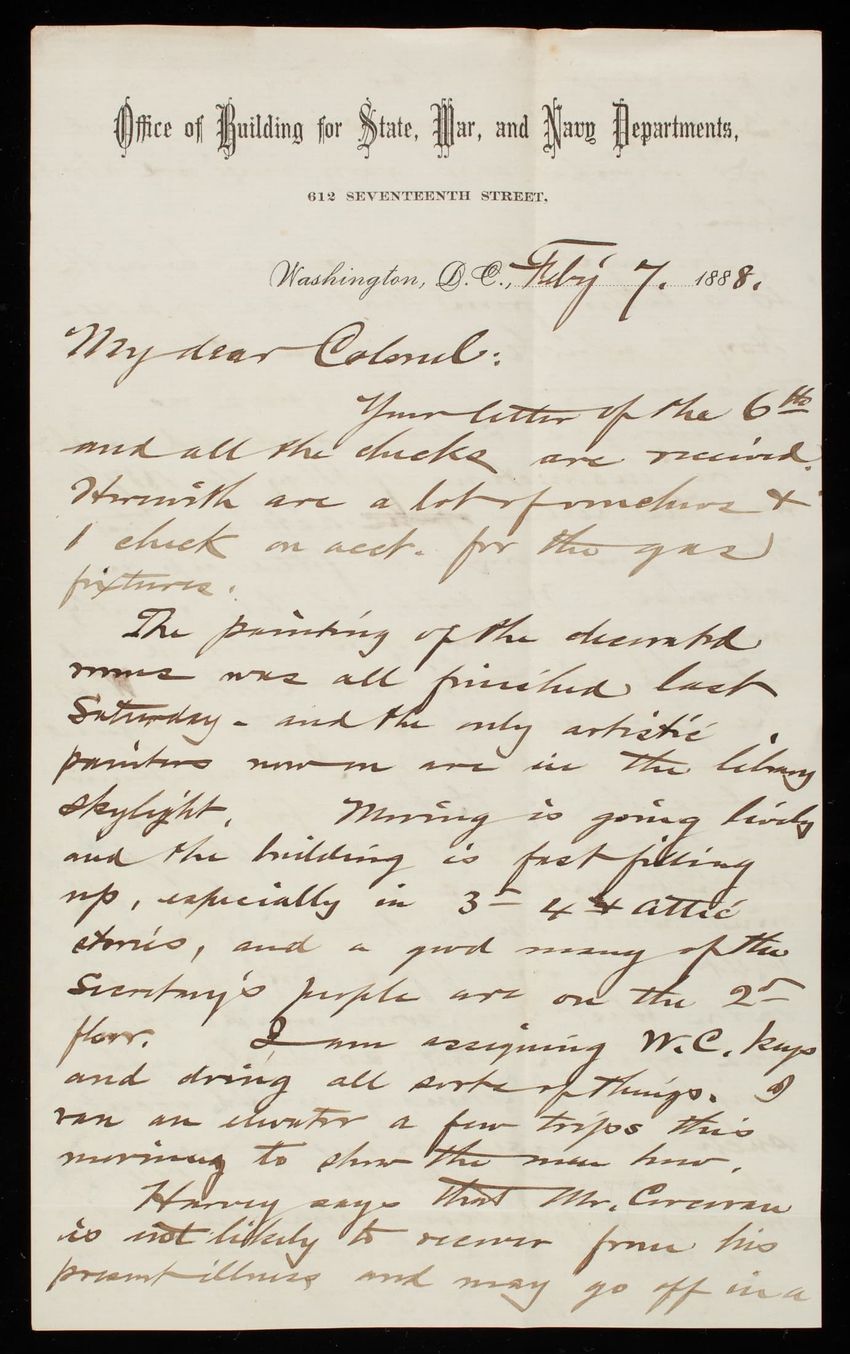 Office of Building for State, War, and Navy Departments,
612 SEVENTEENTH STREET,
Washington, D.C., Feby 7. 1888.
My dear Colonel:
Your letter of the 6th
and all the checks are received.
Herewith are a lot of vouchers &
1 check on acct. for the gas
fixtures.
The painting of the decorated
rooms was all finished last
Saturday - and the only artistic
painters now on are in the library
skylight. Moving is going lively
and the building is fast filling
up, especially in 3d 4th & attic
stories, and a good many of the
Secretary's people are on the 2d
floor. I am assigning W.C. keys
and doing all sorts of things. I
ran an elevator a few trips this
morning to show the man how.
Harvey says that Mr. Corcoran
is not likely to recover from his
present illness and may go off in a